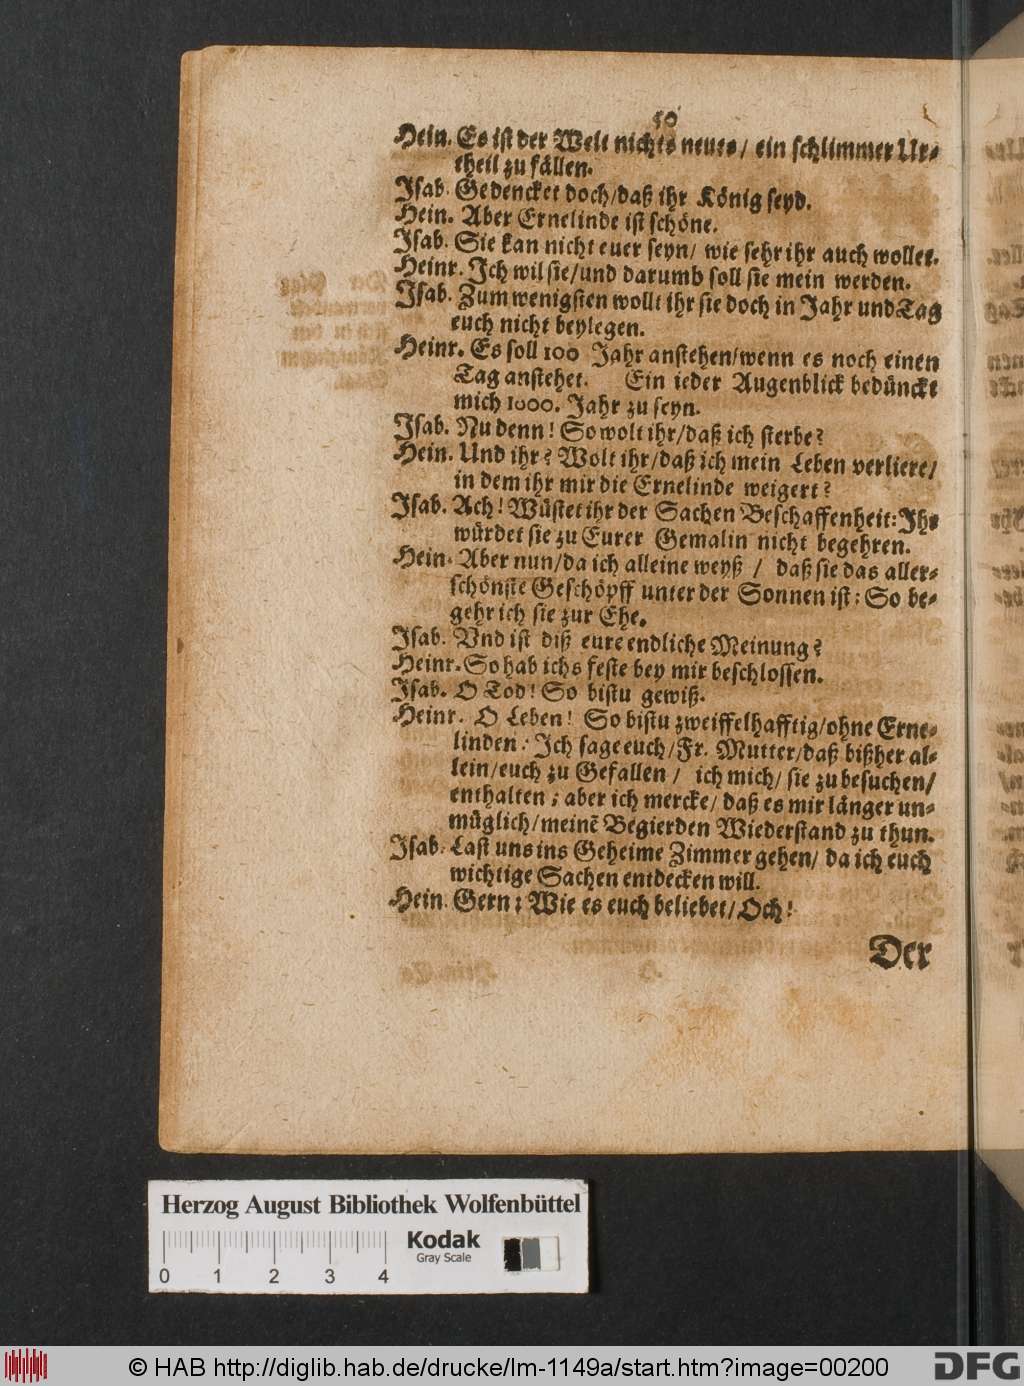 50
Hein. Es ist der Welt nichts neues/ ein schlimmer Ur-
theil zu fällen.
Isab. Gedencket doch/daß ihr König seyd.
Hein. Aber Ernelinde ist schöne.
Isab. Sie kan nicht euer seyn/ wie sehr ihr auch wollet.
Heinr. Ich wil sie/und darumb soll sie mein werden.
Isab. Zum wenigsten wollt ihr sie doch in Jahr und Tag
euch nicht beylegen.
Heinr. Es soll 100 Jahr anstehen/wenn es noch einen
Tag anstehet. Ein ieder Augenblick bedünckt
mich 1000. Jahr zu seyn.
Isab. Nu denn! So wolt ihr/daß ich sterbe?
Hein. Und ihr? Wolt ihr/daß ich mein Leben verliere/
in dem ihr mir die Ernelinde weigert?
Isab. Ach! Wüstet ihr der Sachen Beschaffenheit: Ihr
würdet sie zu Eurer Gemalin nicht begehren.
Hein. Aber nun/da ich alleine weyß / daß sie das aller-
schönste Geschöpff unter der Sonnen ist: So be-
gehr ich sie zur Ehe.
Isab. Vnd ist diß eure endliche Meinung?
Heinr. So hab ichs feste bey mir beschlossen.
Isab. O Tod! So bistu gewiß.
Heinr. O Leben! So bistu zweiffelhafftig/ohne Erne-
linden: Ich sage euch/Fr. Mutter/daß bißher al-
lein/euch zu Gefallen / ich mich/ sie zu besuchen/
enthalten; aber ich mercke/ daß es mir länger un-
müglich/meinē Begierden Wiederstand zu thun.
Isab. Last uns ins Geheime Zimmer gehen/ da ich euch
wichtige Sachen entdecken will.
Hein. Gern; Wie es euch beliebet/Och!
Der
Herzog August Bibliothek Wolfenbüttel
Kodak
Gray Scale
0 1 2 3 4
© HAB http://diglib.hab.de/drucke/lm-1149a/start.htm?image=00200
DFG